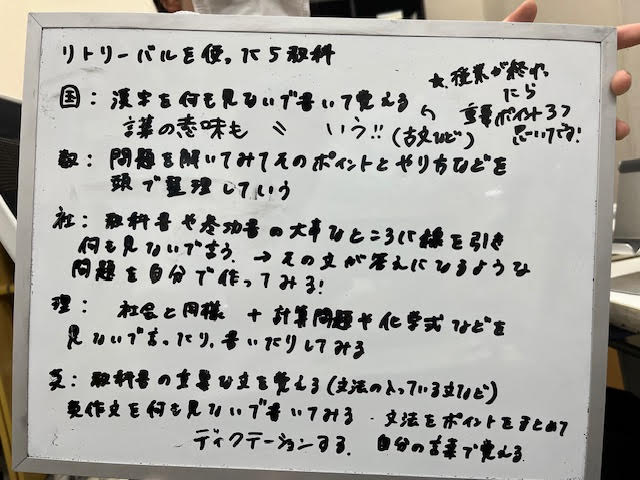 リトリーバルを使った5教科
★授業が終わったら
重要ポイント3つ
思いでる!
国:漢字を何も見ないで書いて覚える
言葉の意味も 〃 いう!!(古文など)
数:問題を解いてみてそのポイントとやり方などを
頭で整理していう
社:教科書や参功書の大事なところに様を引き
何も見ないで言う。→その文が答えになるような
問題を自分で作ってみる!
理:社会と同様 + 計算問題や化学式などを
見ないで言ったり、書いたりしてみる
英:教科書の重要な文を覚える(文法の入っている文など)
英作文を何も見ないで書いてみる・文法をポイントをまとめて
ディクテーションする。 自分の言葉で覚える